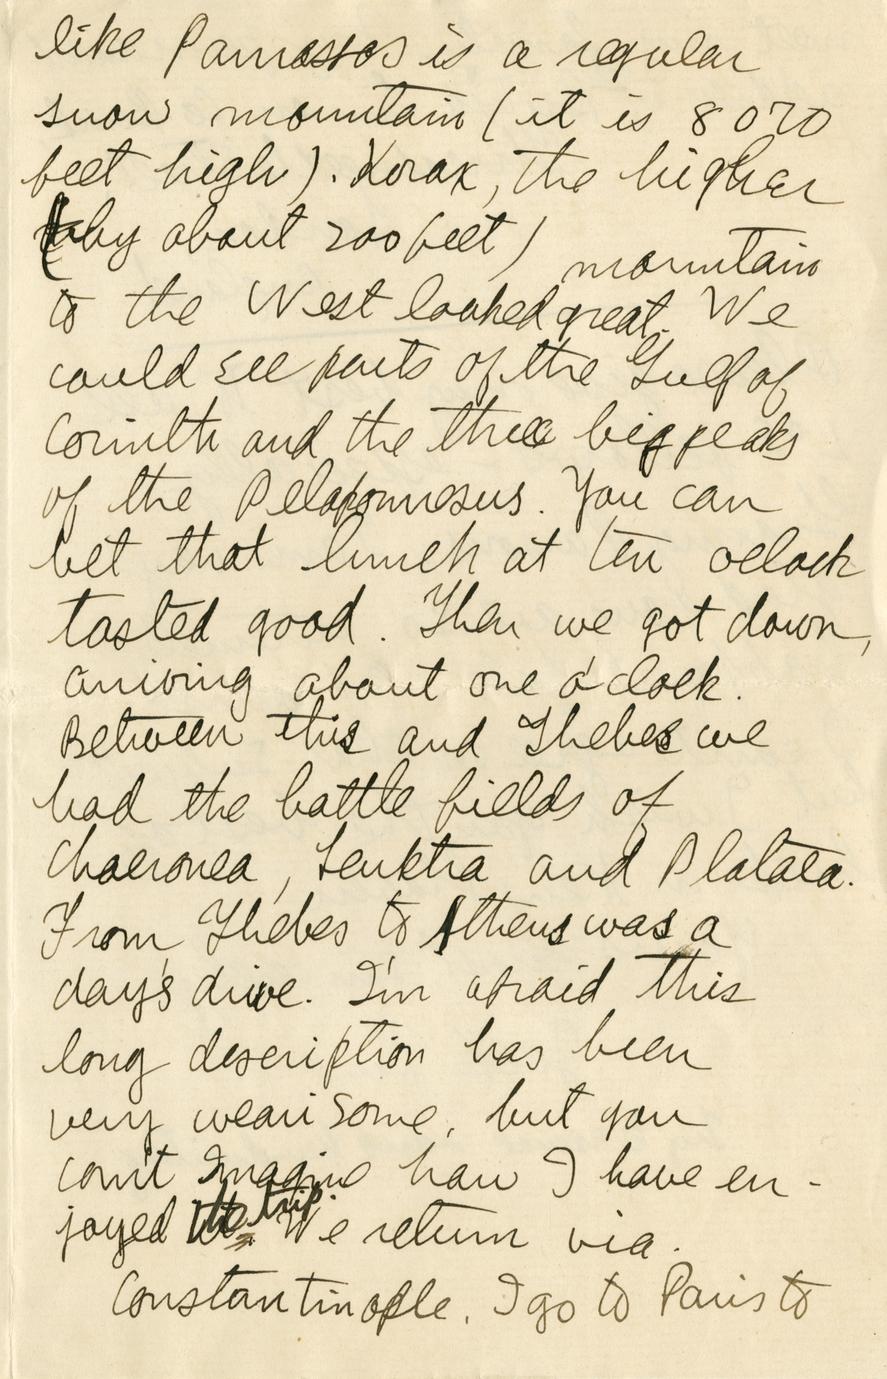 like Parnassos is a regular
snow mountain (it is 8070
feet high). Korax, the higher
(by about 200 feet)
mountain
to the West looked great. We
could see parts of the Gulf of
Corinth and the three big peaks
of the Pelaponnesus. You can
bet that lunch at ten oclock
tasted good. Then we got down,
arriving about one o'clock.
Between this and Thebes we
had the battle fields of
Chaeronea, Leuktra and Plataea.
From Thebes to Athens was a
day's drive. I'm afraid this
long description has been
very weari some, but you
can't imagine how I have en-
joyed the trip. We return via.
Constantinople. I go to Paris to